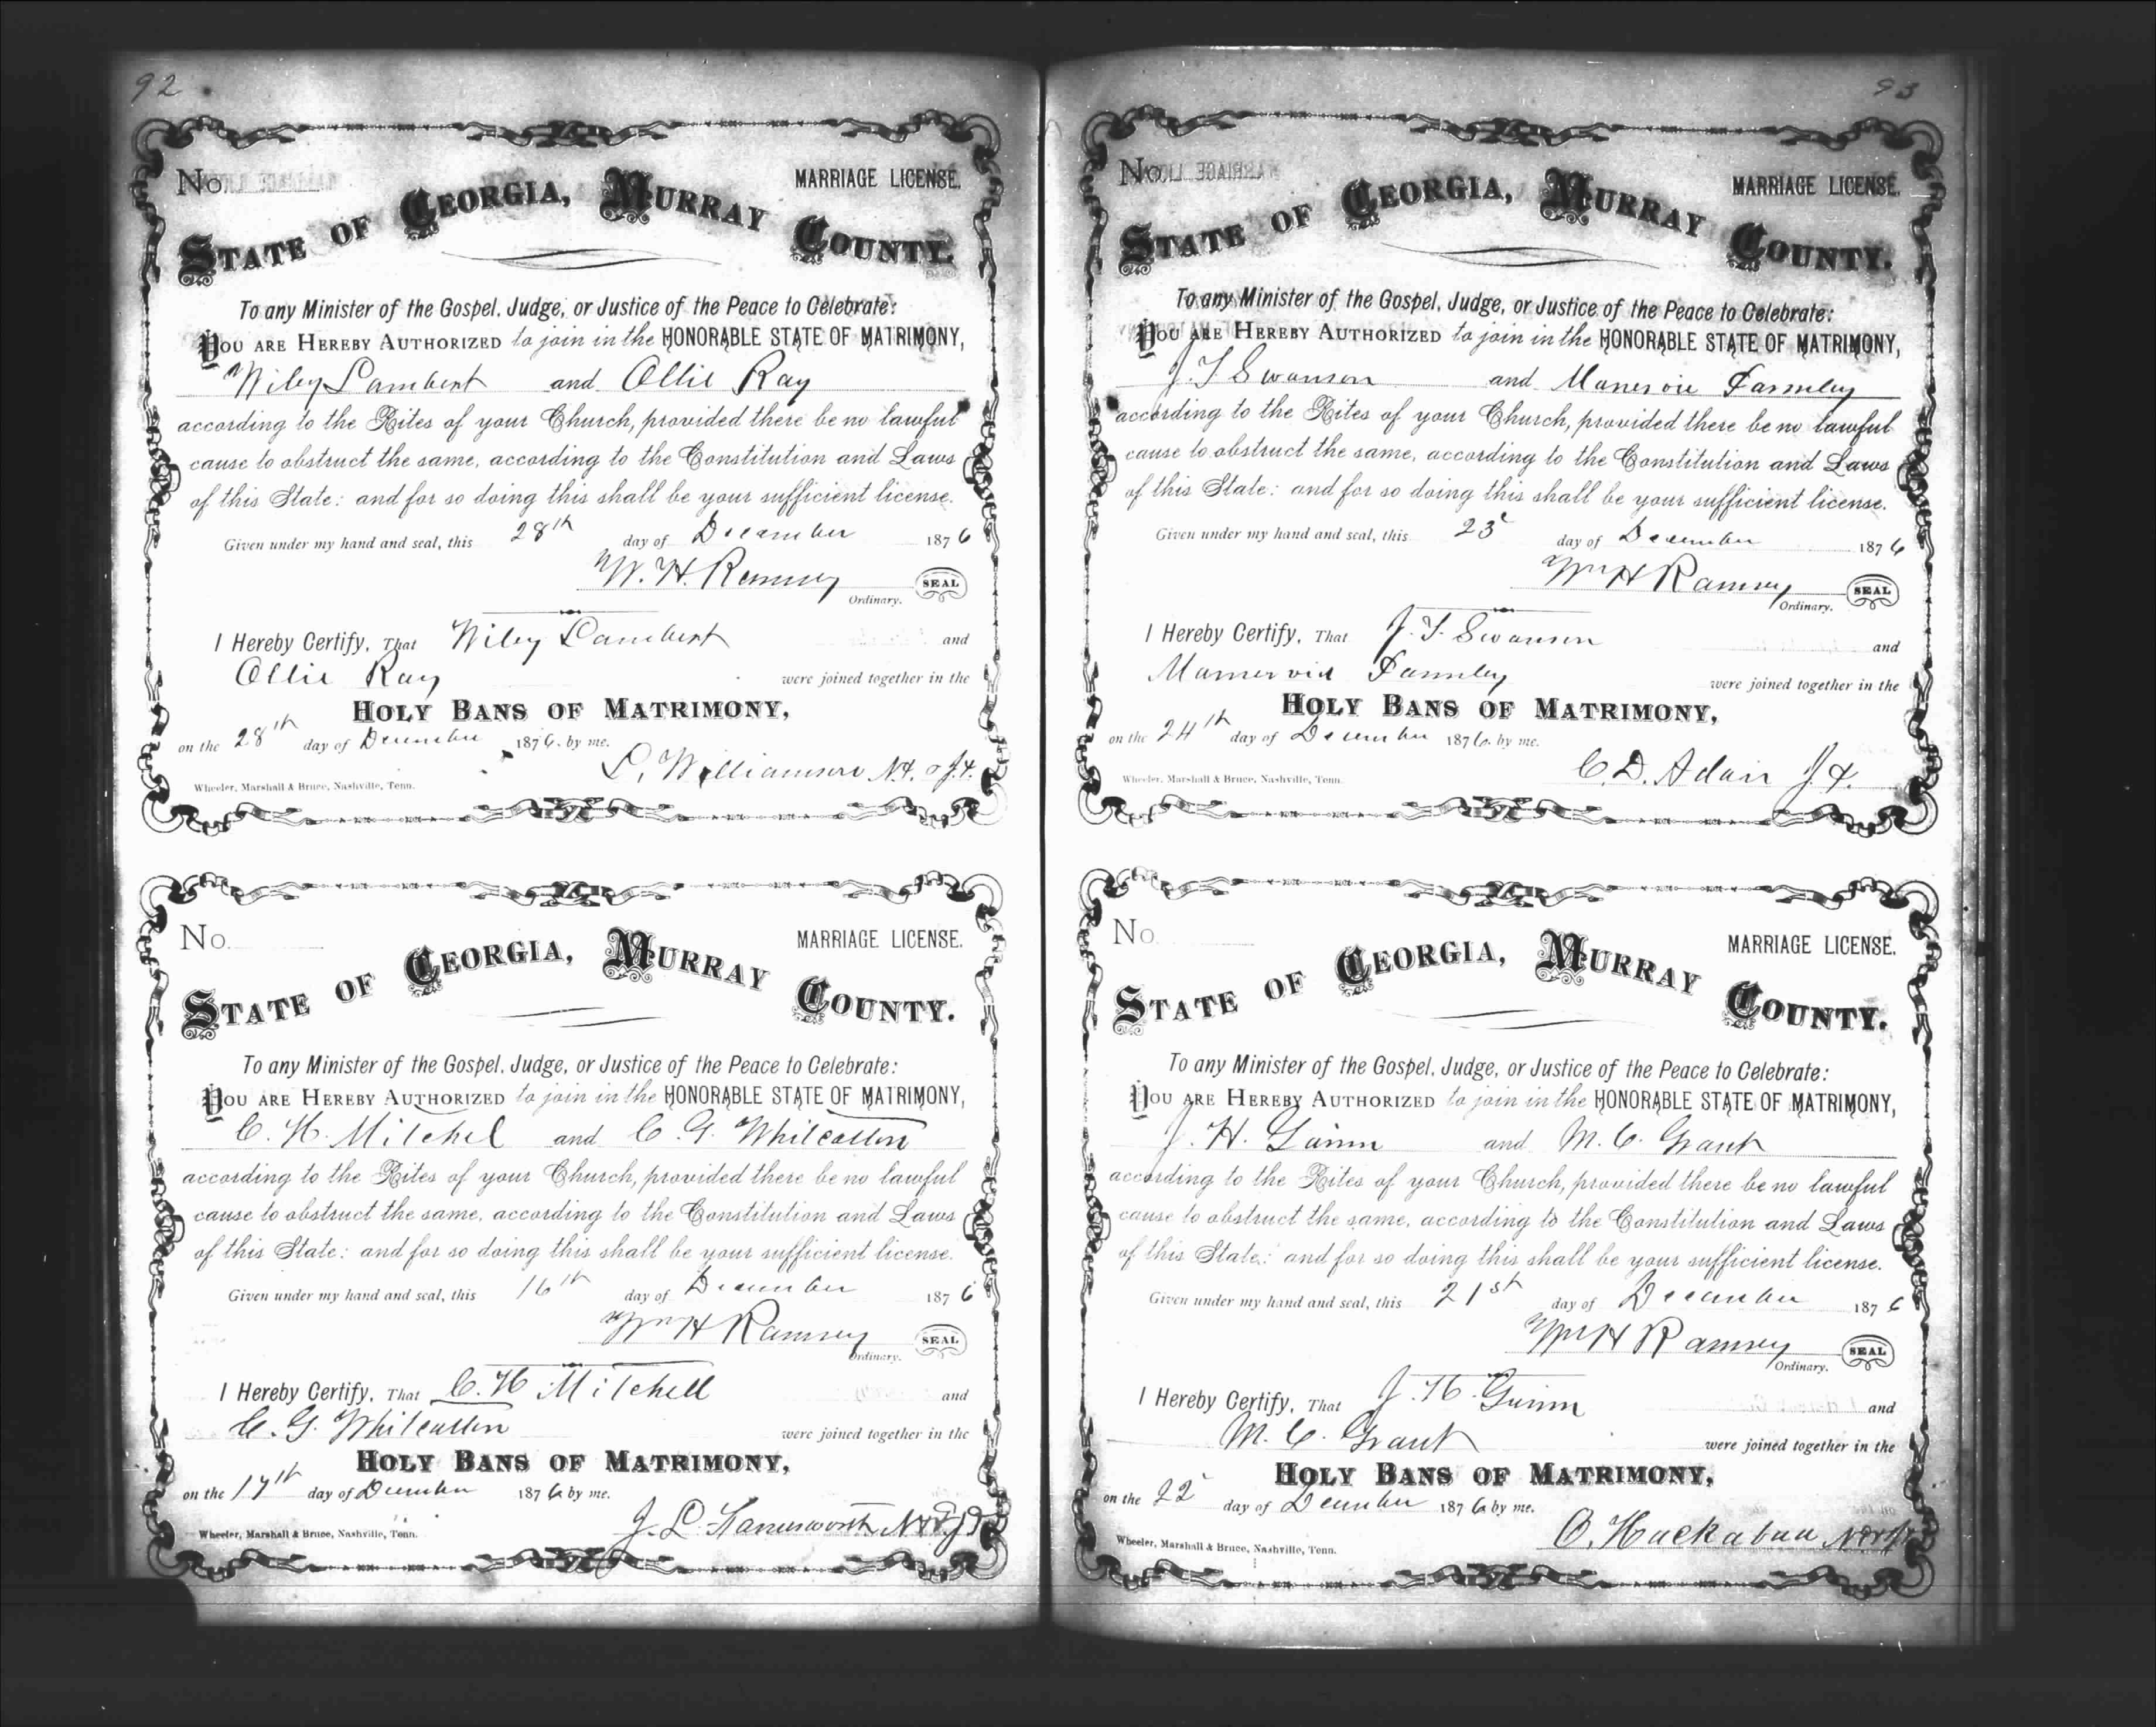 92
No.
MARRIAGE LICENSE.
STATE OF GEORGIA, MURRAY COUNTY.
To any Minister of the Gospel, Judge, or Justice of the Peace to Celebrate:
YOU ARE HEREBY AUTHORIZED to join in the HONORABLE STATE OF MATRIMONY,
Wiley Lambert and Ollie Ray
according to the Rites of your Church, provided there be no lawful
cause to obstruct the same, according to the Constitution and Laws
of this State: and for so doing this shall be your sufficient license.
Given under my hand and seal, this 28th day of December 1876
W. H. Ramsey SEAL
Ordinary.
I Hereby Certify, That Wiley Lambert and
Ollie Ray were joined together in the
HOLY BANS OF MATRIMONY,
on the 28th day of December 1876. by me.
L. Williamson
Wheeler, Marshall & Bruce, Nashville, Tenn.
No.
MARRIAGE LICENSE.
STATE OF GEORGIA, MURRAY COUNTY.
To any Minister of the Gospel, Judge, or Justice of the Peace to Celebrate:
YOU ARE HEREBY AUTHORIZED to join in the HONORABLE STATE OF MATRIMONY,
C. H. Mitchel and C. G. Whitcotton
according to the Rites of your Church, provided there be no lawful
cause to obstruct the same, according to the Constitution and Laws
of this State: and for so doing this shall be your sufficient license.
Given under my hand and seal, this 16th day of December 1876
Wm H Ramsey SEAL
Ordinary.
I Hereby Certify, That C. H Mitchell and
C. G. Whitcotton were joined together in the
HOLY BANS OF MATRIMONY,
on the 17th day of December 1876 by me.
J. L.
Wheeler, Marshall & Bruce, Nashville, Tenn.
93
No.
MARRIAGE LICENSE.
STATE OF GEORGIA, MURRAY COUNTY.
To any Minister of the Gospel, Judge, or Justice of the Peace to Celebrate:
YOU ARE HEREBY AUTHORIZED to join in the HONORABLE STATE OF MATRIMONY,
J. T Swanson and
according to the Rites of your Church, provided there be no lawful
cause to obstruct the same, according to the Constitution and Laws
of this State: and for so doing this shall be your sufficient license.
Given under my hand and seal, this 23 day of December 1876
Wm H Ramsey SEAL
Ordinary.
I Hereby Certify, That J. T. Swanson and
were joined together in the
HOLY BANS OF MATRIMONY,
on the 24th day of December 1876. by me.
C. D. Adair
Wheeler, Marshall & Bruce, Nashville, Tenn.
No.
MARRIAGE LICENSE.
STATE OF GEORGIA, MURRAY COUNTY.
To any Minister of the Gospel, Judge, or Justice of the Peace to Celebrate:
YOU ARE HEREBY AUTHORIZED to join in the HONORABLE STATE OF MATRIMONY,
J. H. Guinn and M. C. Grant
according to the Rites of your Church, provided there be no lawful
cause to obstruct the same, according to the Constitution and Laws
of this State: and for so doing this shall be your sufficient license.
Given under my hand and seal, this 21st day of December 1876
Wm H Ramsey SEAL
Ordinary.
I Hereby Certify, That J. H. Guinn and
M. C. Grant were joined together in the
HOLY BANS OF MATRIMONY,
on the 22 day of December 1876 by me.
O. Huckabau
Wheeler, Marshall & Bruce, Nashville, Tenn.